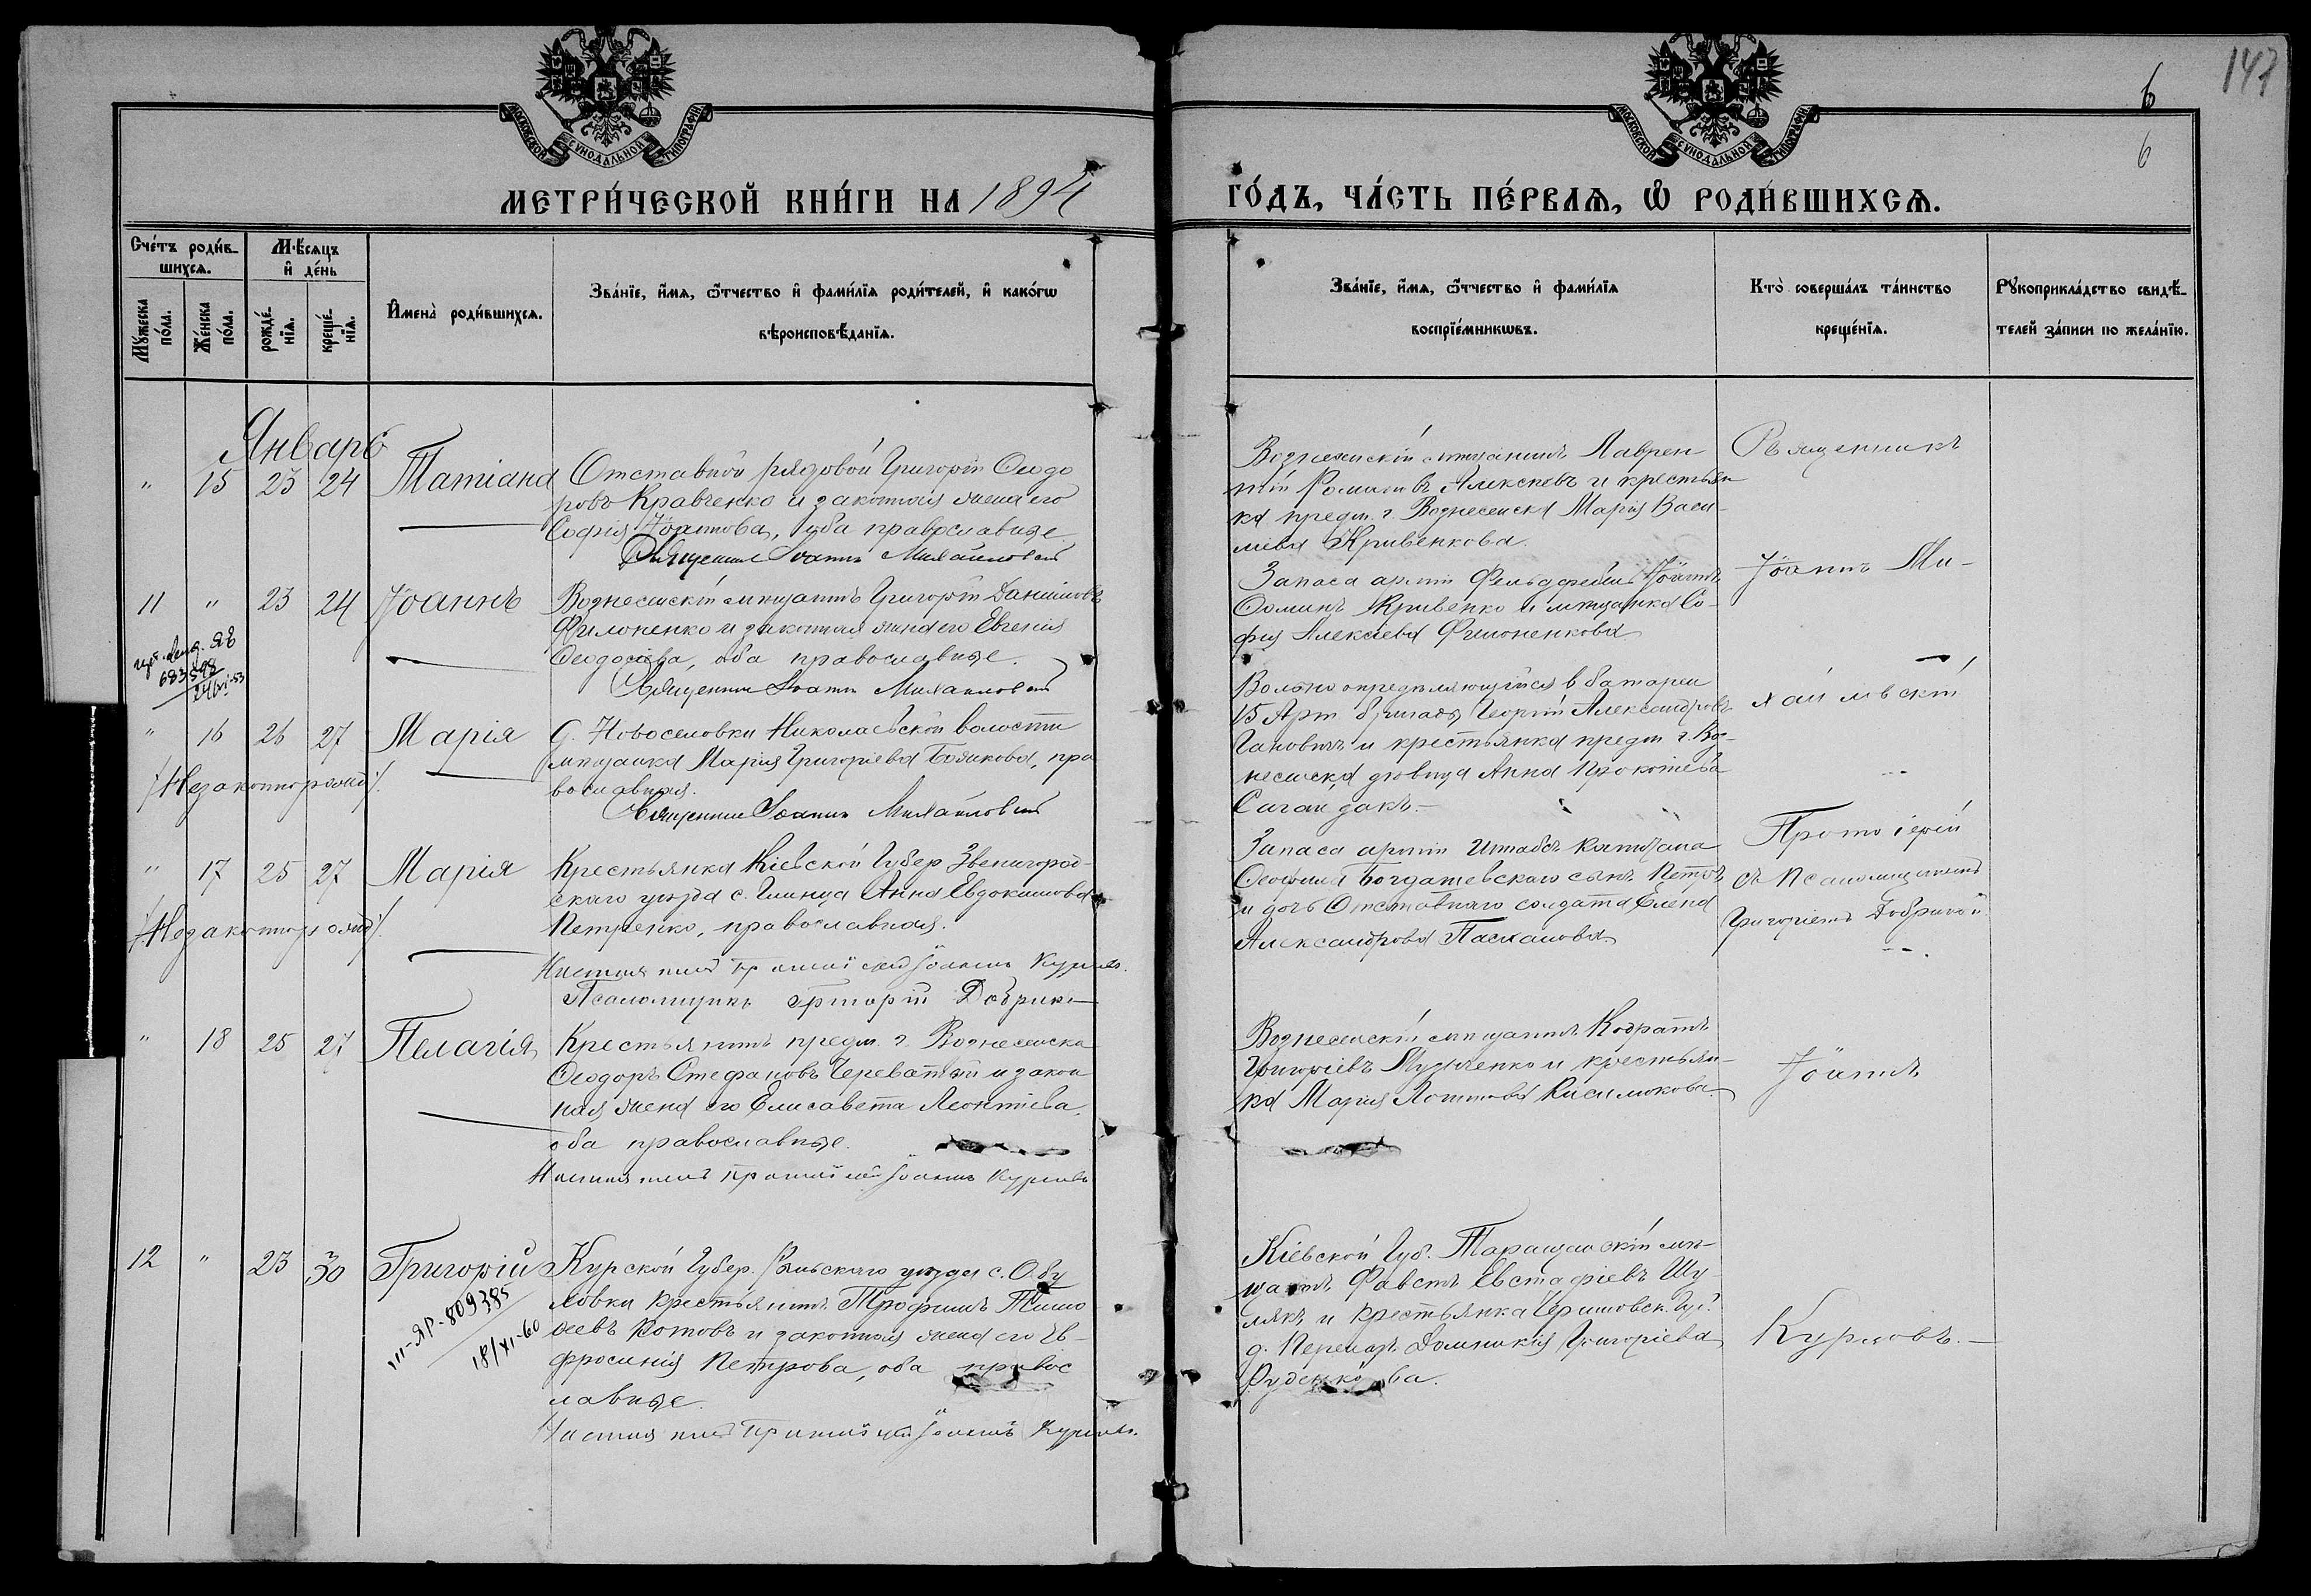 147
6
6
МОСКОВСКОЙ СѴНОДАЛЬНОЙ ТИПОГРАФІИ
МОСКОВСКОЙ СѴНОДАЛЬНОЙ ТИПОГРАФІИ
МЕТРИ́ЧЕСКОЙ КНИ́ГИ НА 1894
ГО́ДЪ, ЧА́СТЬ ПЕ́РВАѦ, Ѽ РОДИ́ВШИХСѦ.
Сче́тъ роди́в-
шихсѧ.
Мѣ́сяцъ
и҆ де́нь
Мꙋ́жеска
по́ла.
Же́нска
по́ла.
рожде́-
нїѧ.
креще́-
нїѧ.
И҆мена̀ роди́вшихсѧ.
Зва́нїе, и҆́мѧ, ѻ҆́тчество и҆ фами́лїѧ роди́телей, и҆ како́гѡ
вѣроисповѣ́данїѧ.
Зва́нїе, и҆́мѧ, ѻ҆́тчество и҆ фами́лїѧ
воспрїе́мникѡвъ.
Кто̀ соверша́лъ та́инство
креще́нїѧ.
Рꙋкоприкла́дство свидѣ́-
телей за́писи по жела́нїю.
Январь
" 15 23 24 Татіана
Отставной рядовой Григорій Ѳеодо
ровъ Кравченко и законная жена его
Софія Іоаннова, оба православные
Священникъ Іоаннъ Михайловскій
Вознесенскій мѣщанинъ Лаврен-
тій Романовъ Алексѣевъ и крестьян
ка предм. г. Вознесенска Марія Васи-
ліева Кривенкова.
Священникъ
11 " 23 24 Іоаннъ
Вознесенскій мѣщанинъ Григорій Даніиловъ
Филоненко и законная жена его Евгенія
Ѳеодосіева, оба православные.
Священникъ Іоаннъ Михайловскій
683598
24/VI-53
Запаса арміи Фельдфебель Іоаннъ
Ѳоминъ Кривенко и мѣщанка Со-
фія Алексѣева Филоненкова
Іоаннъ Ми-
" 16 26 27 Марія
/Незаконнорожд/.
Д. Новоселовки Николаевской волости
мѣщанка Марія Григоріева Боянова, пра
вославная.
Священникъ Іоаннъ Михайловскій
Вольноопредѣляющійся в батареи
15 Арт бригады Георгій Александровъ
Ганович и крестьянка предм г. Воз-
несенска дѣвица Анна Прокопіева
Сагайдакъ.
хайловскій
" 17 25 27 Марія
/Незаконнорожд/.
Крестьянка Кіевской Губер Звенигород-
скаго уѣзда с. Глинца Анна Евдокимова
Петренко, православная.
Настоятель Протоіерей Іоаннъ Курловъ.
Псаломщикъ Григорій Добрик
Запаса арміи Штабсъ капитана
Ѳеофила Богдашевскаго сынъ Петръ
и дочь Отставнаго солдата Елена
Александрова Пасханова
Протоіерей
съ Псаломщикомъ
Григоріемъ
" 18 25 27 Пелагія
Крестьянинъ предм. г. Вознесенска
Ѳеодоръ Стефановъ Череватый и закон
ная жена его Елисавета Леонтіева,
оба православные.
Настоятель Протоіерей Іоаннъ Курловъ
Вознесенскій мѣщанинъ Кодратъ
Григоріевъ Мудренко и крестьян-
ка Марія Логинова Кисилюкова.
Іоаннъ
12 " 23 30 Григорій
III-ЯР-809385
18/XI-60
Курской Губер. Рыльскаго уѣзда с. Обу
ховки крестьянинъ Трофимъ Тимо
ѳеевъ Котовъ и законная жена его Ев-
фросинія Петрова, оба правос
лавные.
Настоятель Протоіерей Іоаннъ Курловъ.
Кіевской Губ. Таращанскій мѣ-
щанинъ Фавстъ Евстафіевъ Шу-
лякъ и крестьянка Черниговск. Губ.
д. Домникія Григоріева
Руденкова.
Курловъ.